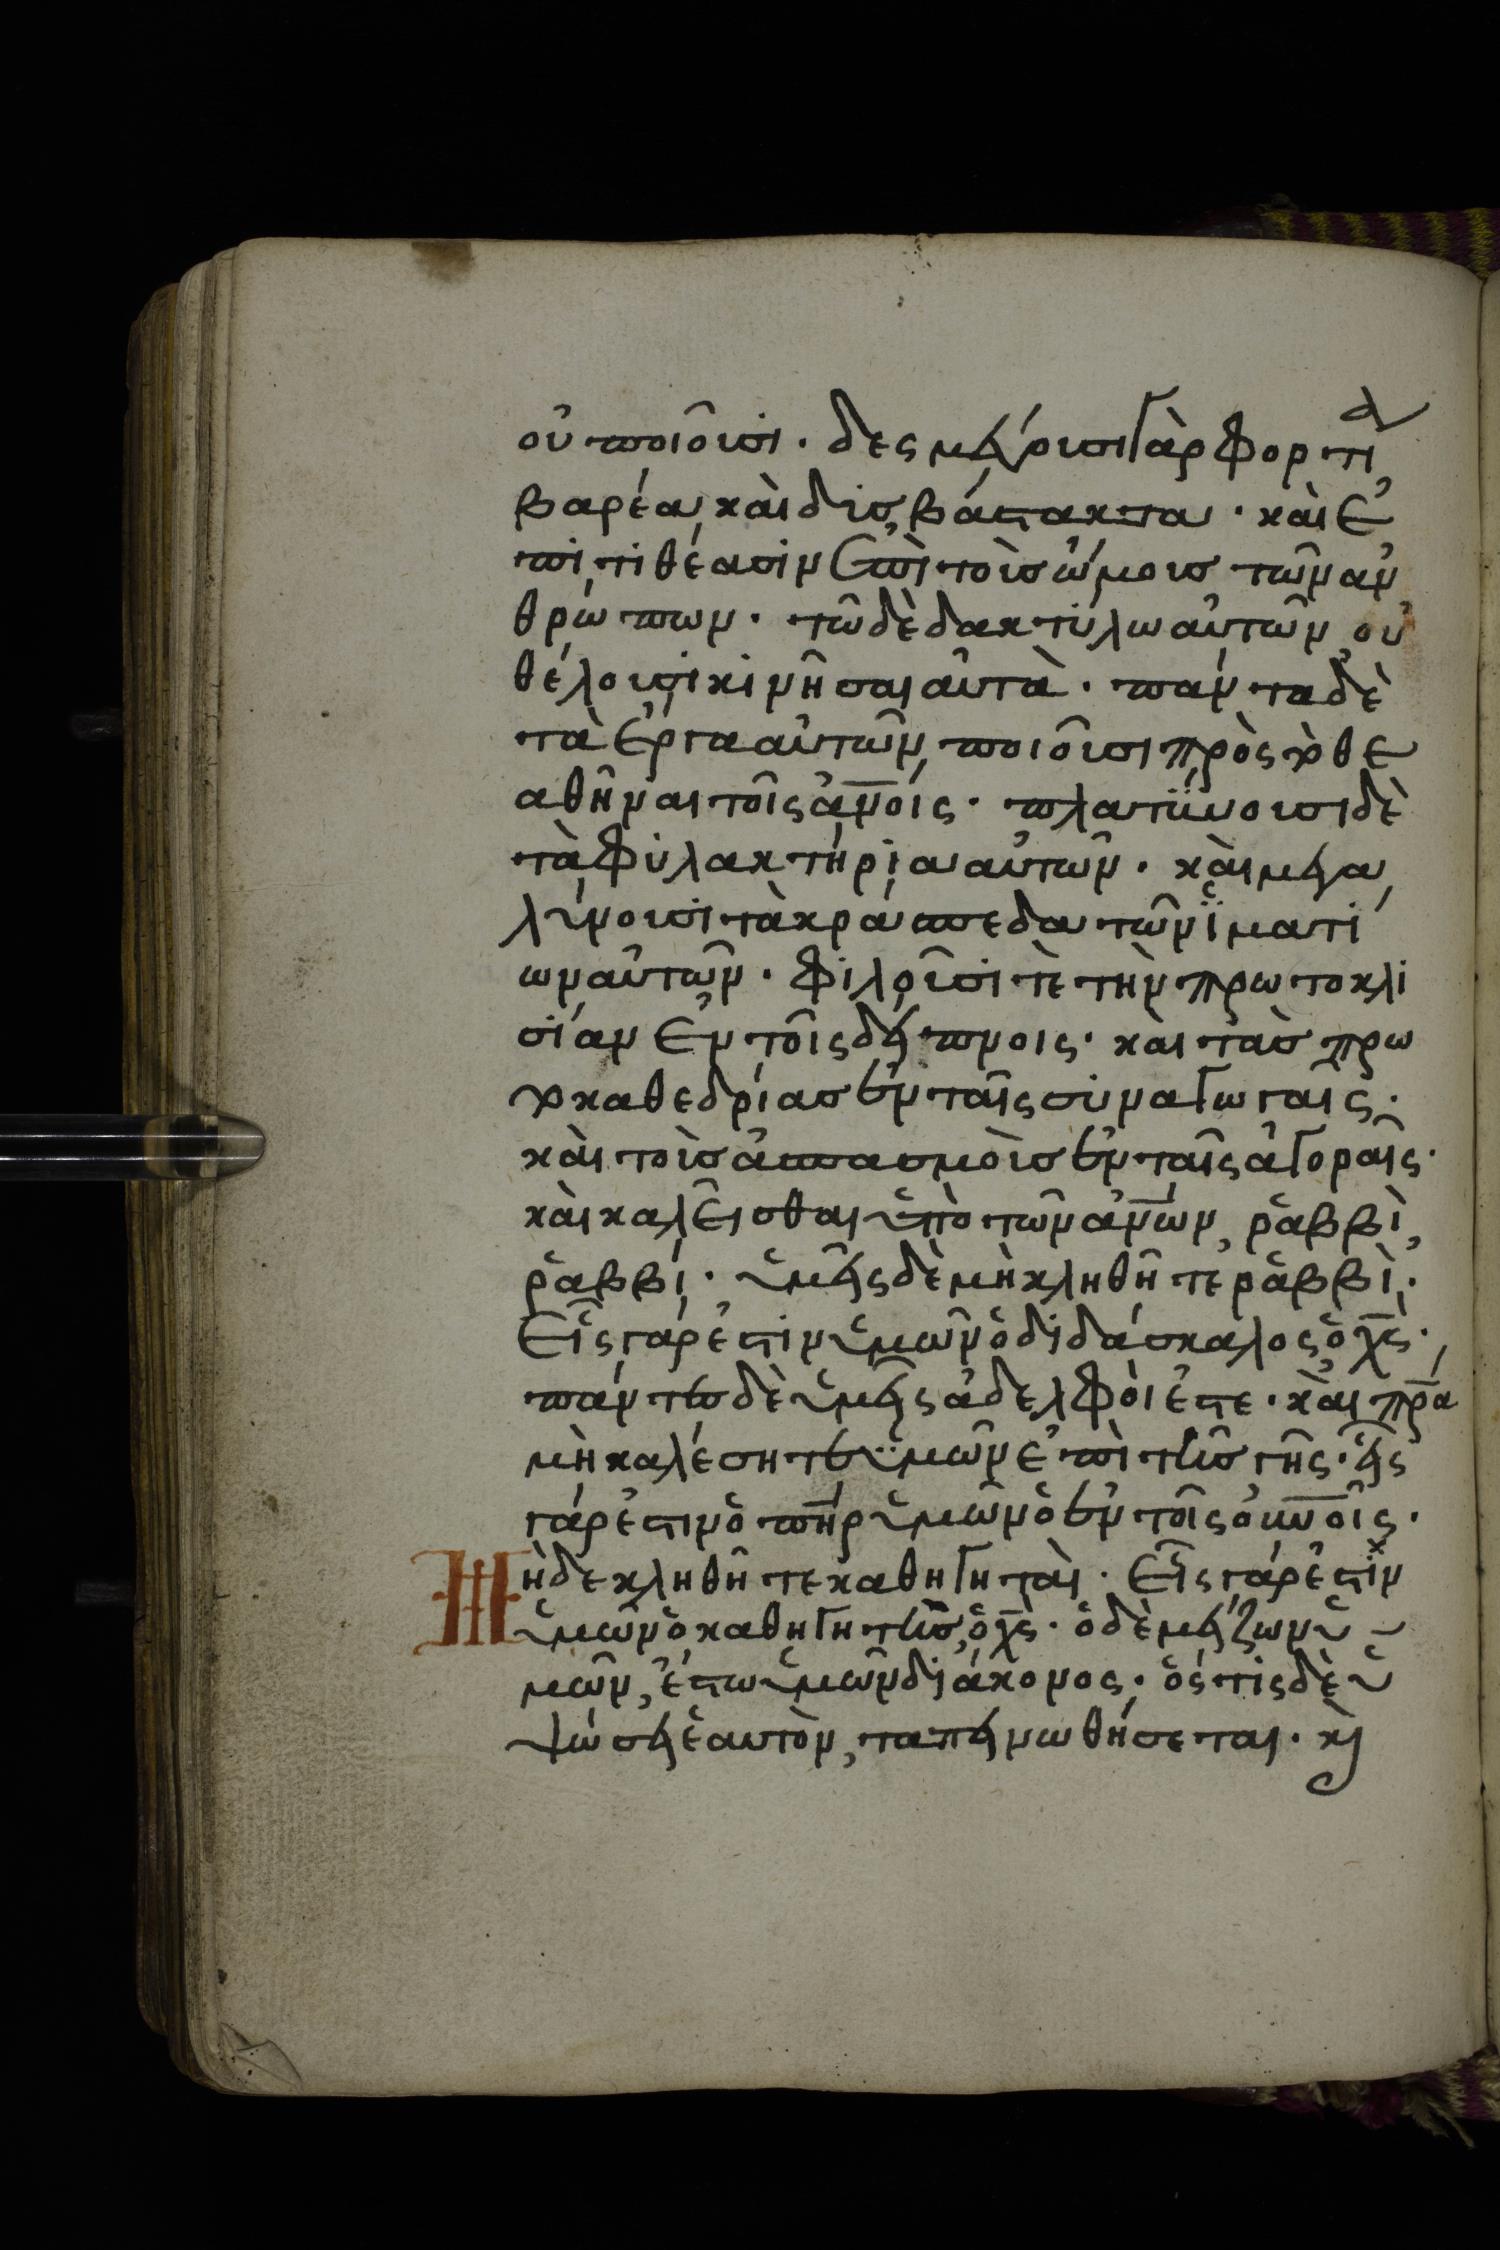 οὐ ποιοῦσι · δεσμεύουσι γὰρ φορτία
βαρέα καὶ δυσβάστακτα · καὶ ἐ
πιτιθέασιν ἐπὶ τοὺσ ὤμουσ τῶν ἀν
θρώπων · τῶ δὲ δακτύλω αὐτῶν οὐ
θέλουσι κινῆσαι αὐτὰ · πάντα δὲ
τὰ ἔργα αὐτῶν, ποιοῦσι πρὸς τὸ θε
αθῆναι τοῖς ἀν̅οις · πλατύνουσι δὲ
τὰ φυλακτήρια αὐτῶν · καὶ μεγα
λύνουσι τὰ κράσπεδα τῶν ἱματί
ων αὐτῶν · φιλοῦσι τὲ τὴν πρωτοκλι
σίαν ἐν τοῖς δείπνοις · καὶ τὰσ πρω
τοκαθεδρίασ ἐν ταῖς συναγωγαῖς ·
καὶ τοὺσ ἀσπασμοὺσ ἐν ταῖς ἀγοραῖς ·
καὶ καλεῖσθαι ὑπὸ τῶν ἀν̅ων, ῥαββὶ,
ῥαββί · ὑμεῖς δὲ μὴ κληθῆτε ῥαββὶ ·
εἷς γάρ ἐστιν ὑμῶν ὁ διδάσκαλος ὁ χ̅ς ·
πάντεσ δὲ ὑμεῖς ἀδελφοί ἐστε · καὶ πρ̅α
μὴ καλέσητε ὑμῶν ἐπὶ τῆσ γῆς · εἷς
γάρ ἐστιν ὁ πη̅ρ ὑμῶν ὁ ἐν τοῖς οὐν̅οῖς ·
Μηδὲ κληθῆτε καθηγηταὶ · εἷς γάρ ἐστιν
ὑμῶν ὁ καθηγητὴσ, ὁ χ̅ς · ὁ δὲ μείζων ὑ
μῶν, ἔστω ὑμῶν διάκονος · ὅστις δὲ ὑ
ψώσει ἑαυτὸν, ταπεινωθήσεται · κὶ